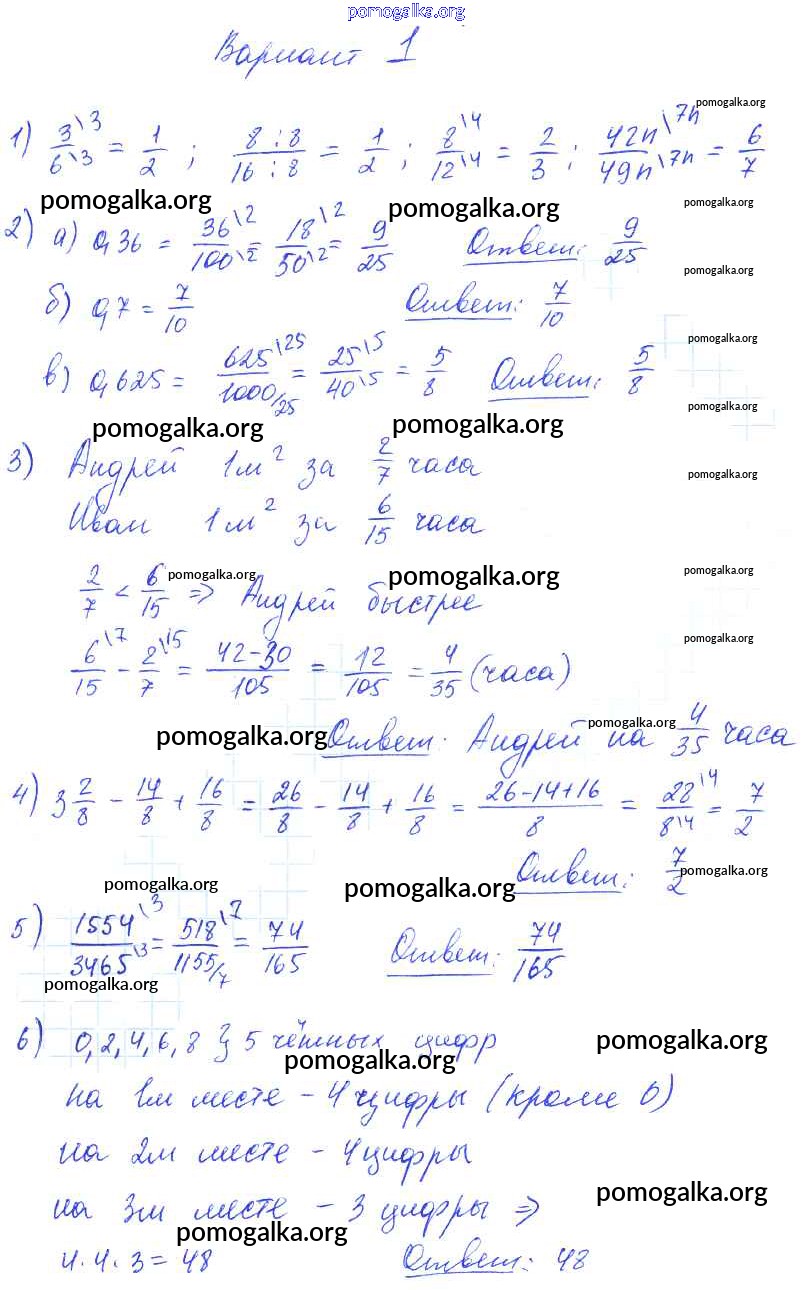 pomogalka.org
Вариант 1
pomogalka.org
1) 3\3/6\3 = 1/2 ; 8:8/16:8 = 1/2 ; 8\4/12\4 = 2/3 ; 42n\7n/49n\7n = 6/7
pomogalka.org pomogalka.org pomogalka.org
2) а) 0,36 = 36\2/100\2 = 18\2/50\2 = 9/25 Ответ: 9/25
pomogalka.org
б) 0,7 = 7/10 Ответ: 7/10
pomogalka.org
в) 0,625 = 625\25/1000/25 = 25\5/40\5 = 5/8 Ответ: 5/8
pomogalka.org
pomogalka.org pomogalka.org
3) Андрей 1м² за 2/7 часа
pomogalka.org
Иван 1м² за 6/15 часа
pomogalka.org pomogalka.org pomogalka.org
2/7 < 6/15 => Андрей быстрее
pomogalka.org
6\7/15 - 2\15/7 = 42-30/105 = 12/105 = 4/35 (часа)
pomogalka.org pomogalka.org
Ответ: Андрей на 4/35 часа
4) 3 2/8 - 14/8 + 16/8 = 26/8 - 14/8 + 16/8 = 26-14+16/8 = 28\4/8\4 = 7/2
Ответ: 7/2
pomogalka.org
pomogalka.org pomogalka.org
5) 1554\3/3465\3 = 518\7/1155/7 = 74/165 Ответ: 74/165
pomogalka.org
6) 0,2,4,6,8 } 5 чётных цифр
pomogalka.org pomogalka.org
на 1м месте - 4 цифры (кроме 0)
на 2м месте - 4 цифры
pomogalka.org
на 3м месте - 3 цифры =>
pomogalka.org
4·4·3=48 Ответ: 48